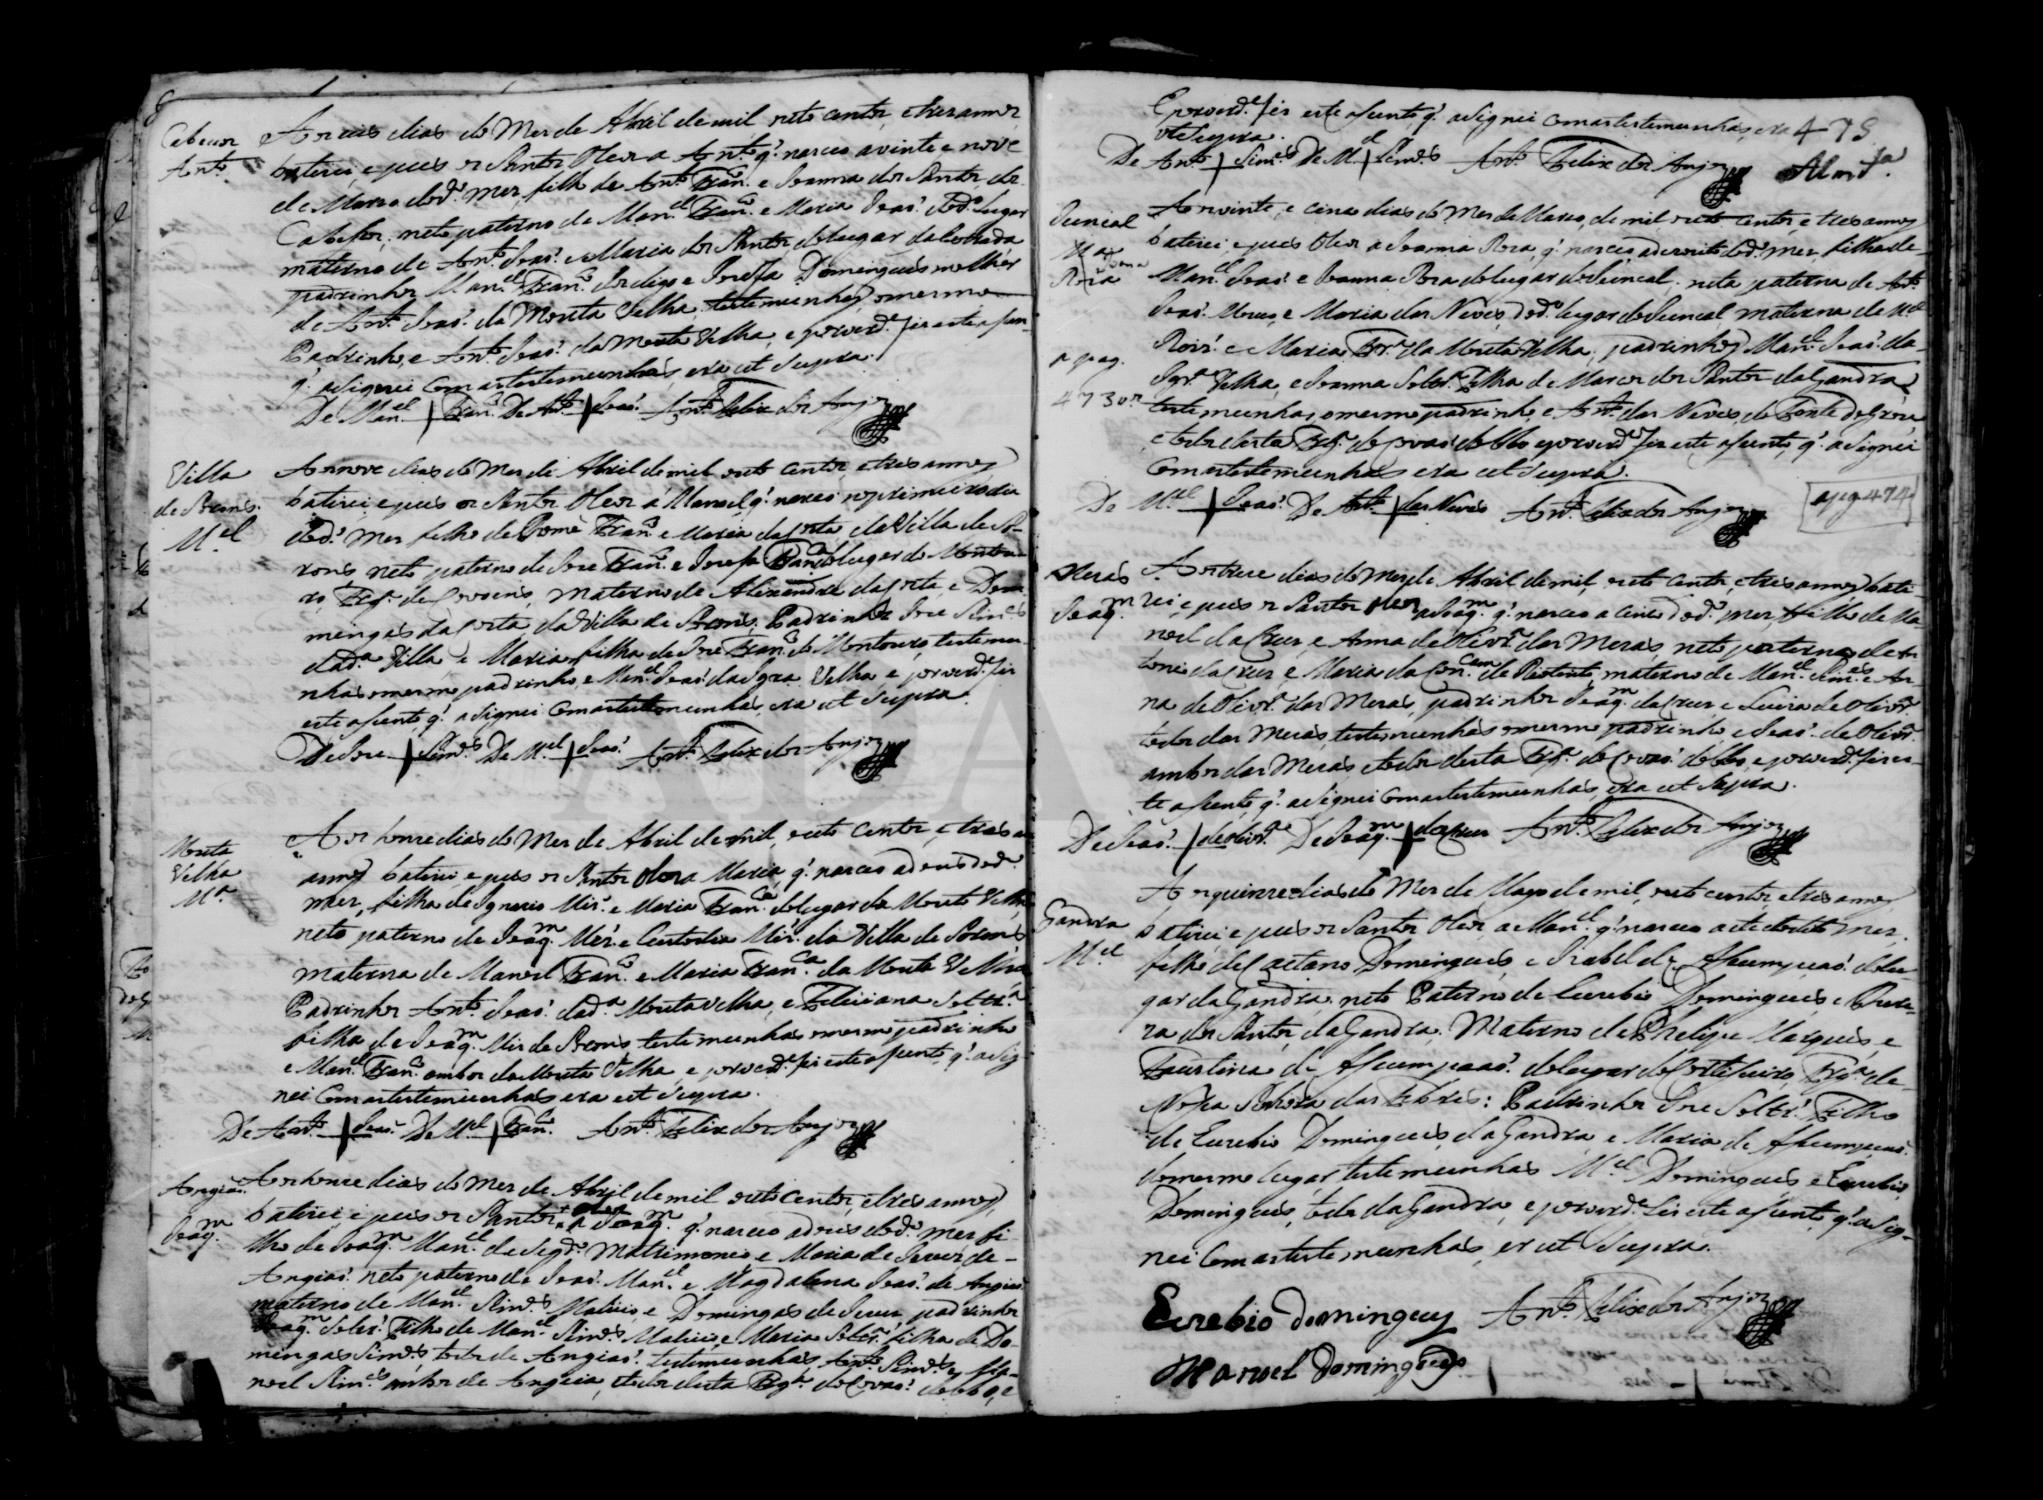 Cabeços
Ant.º
Aos seis dias do Mes de Abril de mil, oito centos, e tres annos,
baticei, e pus os Santos Oleos a Ant.º q.' nasceo a vinte e nove
de Março do d.º mes, filho de Ant.º Fran.co e Joanna dos Santos, dos
Cabeços, neto paterno de Man.el Fran.co e Maria Joaõ do d.º lugar
materno de Ant.º Joaõ e Maria dos Santos, do lugar da
padrinhos Man.el Fran.co e Josefa Domingues molher
de Ant.º Joaõ da Mouta Velha, testemunhas, o mesmo
Padrinho, e Ant.º Joaõ da Mouta Velha, e p.ª verd.e fis este asen-
q.' asignei com as testemunhas, era ut supra.
De Man.el + Fran.co De Ant.º + Joaõ Ant.º Felix dos Anjos
Villa
deÁroens.
M.el
Aos nove dias do Mes de Abril de mil oito centos, e tres annos
baticei e pus os Santos Oleos á Manoel, q.' nasceo no primeiro dia
do d.º mes filho de Tomé Fran.co e Maria da Costa da Villa de
neto paterno de Jose Fran.co e Josefa Fran.ca do lugar do Montou-
ro, Frg.ª de Covoens, materno de Alexandre da Costa, e Do-
mingas da Costa, da Villa de Padrinhos Jose Sim.es
da d.ª Villa e Maria filha de Jose Fran.co do Montouro, testemu-
nhas o mesmo padrinho, e Man.el Joaõ da Igra Velha e p.ª verd.e fis
este asento q.' asignei com as testemunhas, era ut supra.
De Jose + Sim.es De M.el + Joaõ Ant.º Felix dos Anjos
Mouta
Velha
M.ª
Aos honse dias do Mes de Abril de mil, e oito centos, e tres an
annos baticei, e pus os Santos Oleos a Maria, q.' nasceo a do d.º
mes, filha de Ignacio Mir.ª e Maria Fran.ca do lugar da Mouta Velha
neta paterna de Joaq.m Mir.ª e Custodia Mir.ª da Villa de
materna de Manoel Fran.co e Maria Fran.ca da Mouta Velha
Padrinhos Ant.º Joaõ da d.ª Mouta Velha, e Feliciana Soltr.ª
filha de Joaq.m Mir.ª de testemunhas o mesmo padrinho
e Man.el Fran.co ambos da Mouta Velha e p.ª verd.e fis este asento q.' asig-
nei com as testemunhas era ut supra.
De Ant.º + Joaõ De M.el + Fran.co Ant.º Felix dos Anjos
Angiaõ.
Joaq.m
Aos honse dias do Mes de Abril de mil oito centos, e tres annos
baticei, e pus os Santos Oleos a Joaq.m q.' nasceo a do d.º mes fi-
lho de Joaq.m Man.el de seg.do Matrimonio e Maria de Jesus, de
Angiaõ. neto paterno de Joaõ Man.el e Magdalena Joaõ de Angiaõ
materno de Man.el Sim.es e Domingas de Jesus, padrinhos
Joaq.m Soltr.º Filho de Man.el Sim.es e Maria Soltr.ª filha de Do-
mingas Sim.es, todos de Angiaõ. testemunhas, Ant.º Sim.es e Ma-
noel Sim.es ambos de Angiaõ, e todos desta Frg.ª de Covaõ do Lobo, e
E por verd.e fis este asento q.' asignei com as testemunhas, era
ut supra.
473
Alm.da
De Ant.º + Sim.es De M.el + Sim.es Ant.º Felix dos Anjos
Juncal
Joana
Roza
a pag.
473
Aos vinte, e cinco dias do Mes de Março, de mil oito centos e tres annos
baticei, e pus Oleos a Joanna Roza, q.' nasceo a desoito do d.º mes, filha de
Man.el Joaõ e Joanna Roza do lugar do Juncal. neta paterna de Ant.º
Joaõ e Maria das Neves, do d.º lugar do Juncal, materna de M.el
Roiz.' e Maria Fr.ª da Mouta Velha, padrinhos Man.el Joaõ da
Igr.ª Velha, e Joanna Soltr.ª Filha de Marcos dos Santos da Gandra
testemunhas, o mesmo padrinho e Ant.º das Neves, da Fonte do
e todos desta Frg.ª de Covaõ do Lobo e por verd.e fis este asento, q.' asignei
com as testemunhas era ut supra.
De M.el + Joaõ De Ant.º + das Neves Ant.º Felix dos Anjos
apag 474
Mesas
Joaq.m
Aos treze dias do Mes de Abril de mil, oito centos, e tres annos bati-
cei, e pus os Santos Oleos a Joaq.m q.' nasceo a cinco do d.º mes, filho de Ma-
noel da Crus e Anna de Olivr.ª das Mesas, neto paterno de An-
tonio da Crus, e Maria da Conc.am de materno de Man.el Sim.es e An-
na de Olivr.ª das Mesas, padrinhos Joaq.m da Crus e Luiza de Olivr.ª
todos das Mesas, testemunhas o mesmo padrinho e Joaõ de Olivr.ª
ambos das Mesas, e todos desta Frg.ª de Covaõ do Lobo, e por verd.e fis es-
te asento, q.' asignei com as testemunhas, era ut supra.
De Joaõ + de Olivr.ª De Joaq.m + da Crus Ant.º Felix dos Anjos
Gandra
M.el
Aos quinze dias do Mes de Mayo de mil, oito centos e tres annos
baticei e pus os Santos Oleos, a Man.el q.' nasceo a sete do dito mes,
filho de Caetano Domingues, e Izabel de Asumpçaõ do lu-
gar da Gandra, neto Paterno de Euzebio Domingues e
ra dos Santos, da Gandra, Materno de Phelipe Marques, e
Faustina de Asumpçaõ do lugar do Corticeiro, Frg.ª de
Nossa Senhora das Febres: Padrinhos Jose Soltr.º Filho
de Euzebio Domingues, da Gandra e Maria de Asumpçaõ
do mesmo lugar, testemunhas M.el Domingues e Euzebio
Domingues, todos da Gandra, e por verd.e fis este asento q.' asig-
nei com as testemunhas, er ut supra.
Euzebio domingues Ant.º Felix dos Anjos
Manoel domingues